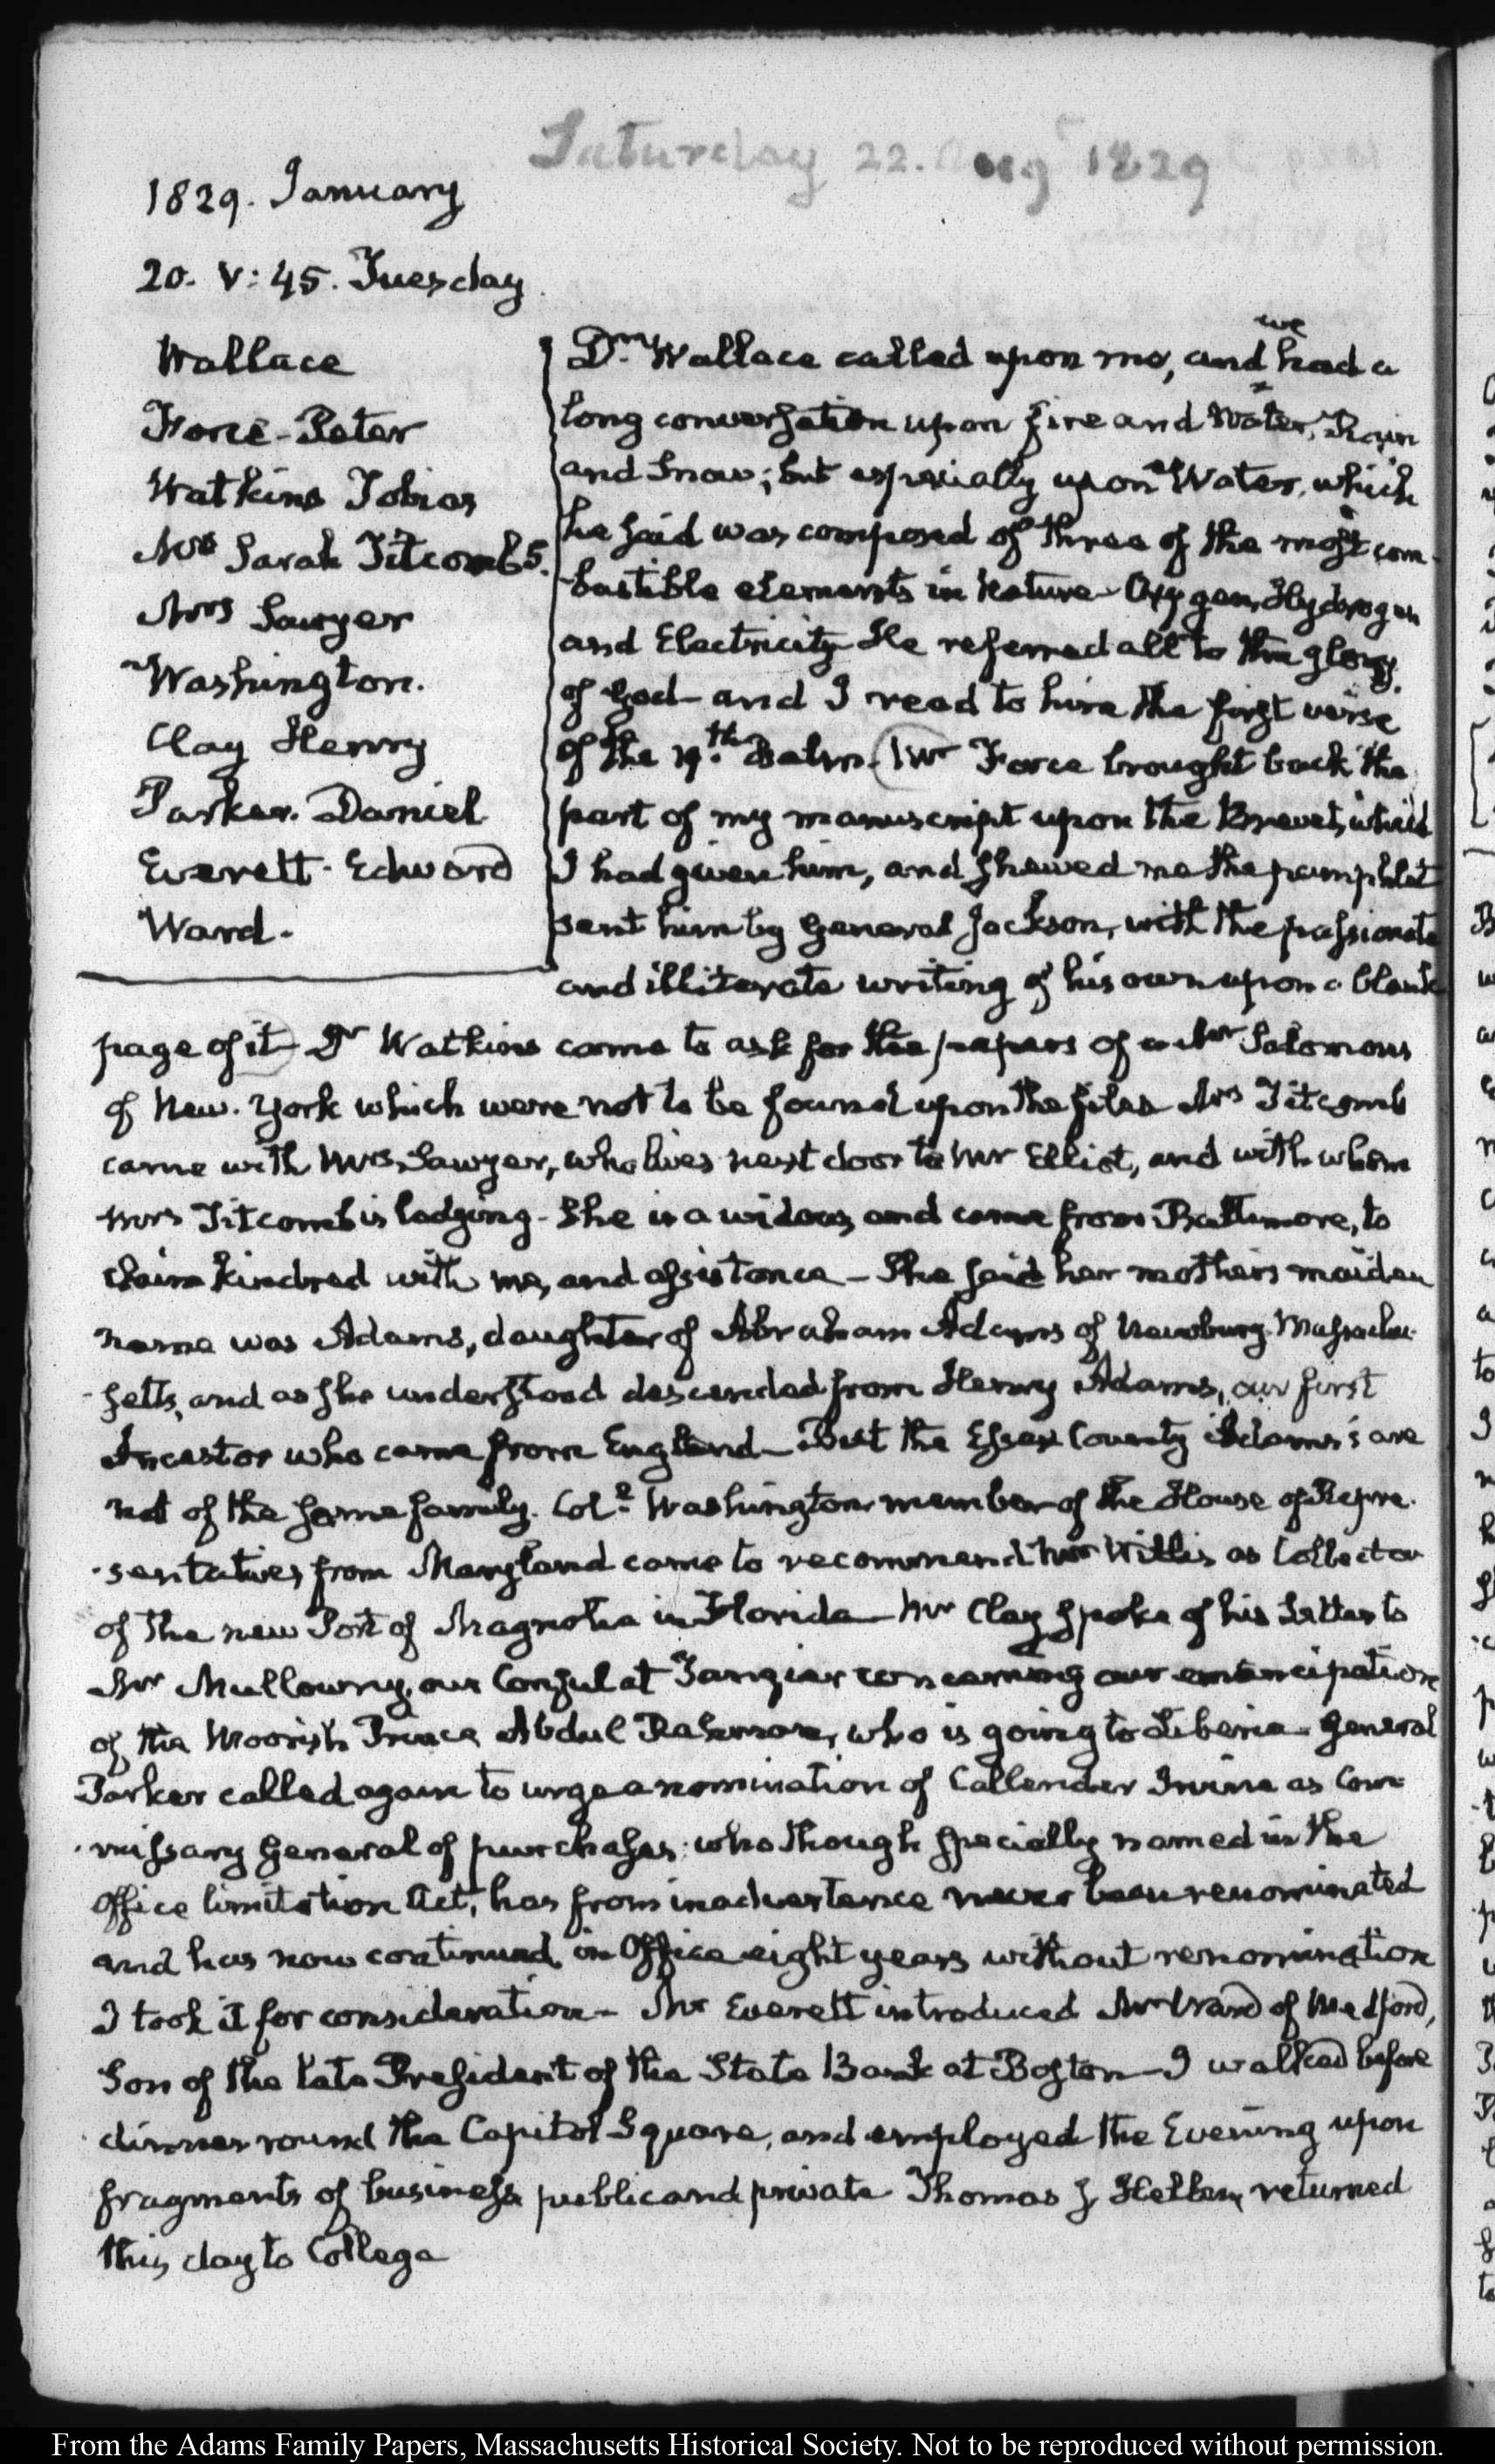 Saturday 22. Aug 1829
1829. January
20. V: 45. Tuesday
Wallace
Force - Peter
Watkins Tobias
Mrs Sarah Titcomb 5.
Mrs Sawyer
Washington.
Clay Henry
Parker. Daniel
Everett - Edward
Ward.
Dr. Wallace called upon me, and we had a
long conversation upon fire and Water, Rain
and Snow; but especially upon Water, which
he said was composed of three of the most com-
bustible elements in Nature - Oxygen, Hydrogen
and Electricity He referred all to the glory
of God - and I read to him the first verse
of the 19.th Psalm. Mr Force brought back the
part of my manuscript upon the Brevets, which
I had given him, and shewed me the pamphlet
sent him by General Jackson, with the passionate
and illiterate writing of his own upon a blank
page of it - Dr Watkins came to ask for the papers of a Mr Salomons
of New-York which were not to be found upon the files Mrs Titcomb
came with Mrs Sawyer, who lives next door to Mr Elliot, and with whom
Mrs Titcomb is lodging - She is a widow, and came from Baltimore, to
claim kindred with me, and assistance - She said her mother's maiden
name was Adams, daughter of Abraham Adams of Newbury Massachu-
-setts, and as she understood descended from Henry Adams, our first
Ancestor who came from England - But the Essex County Adams's are
not of the same family. Col.l Washington member of the House of Repre-
-sentatives from Maryland came to recommend Mr Willis as Collector
of the new Port of Magnolia in Florida - Mr Clay spoke of his Letter to
Mr Mullowny, our Consul at Tangier concerning our emancipation
of the Moorish Prince Abdul Rahaman, who is going to Liberia - General
Parker called again to urge a nomination of Callender Irvine as Com-
-missary General of purchases; who though specially named in the
Office limitation Act, has from inadvertence never been renominated
and has now continued in Office eight years without renomination
I took it for consideration - Mr Everett introduced Mr Ward of Medford,
Son of the late President of the State Bank at Boston - I walked before
dinner round the Capitol Square, and employed the Evening upon
fragments of business public and private Thomas J Hellen, returned
this day to College
From the Adams Family Papers, Massachusetts Historical Society. Not to be reproduced without permission.